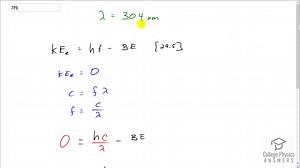 λ = 304 nm
KEₑ = hf - BE [29.5]
KEₑ = 0
c = fλ
f = c/λ
0 = hc/λ - BE
College Physics
ANSWERS